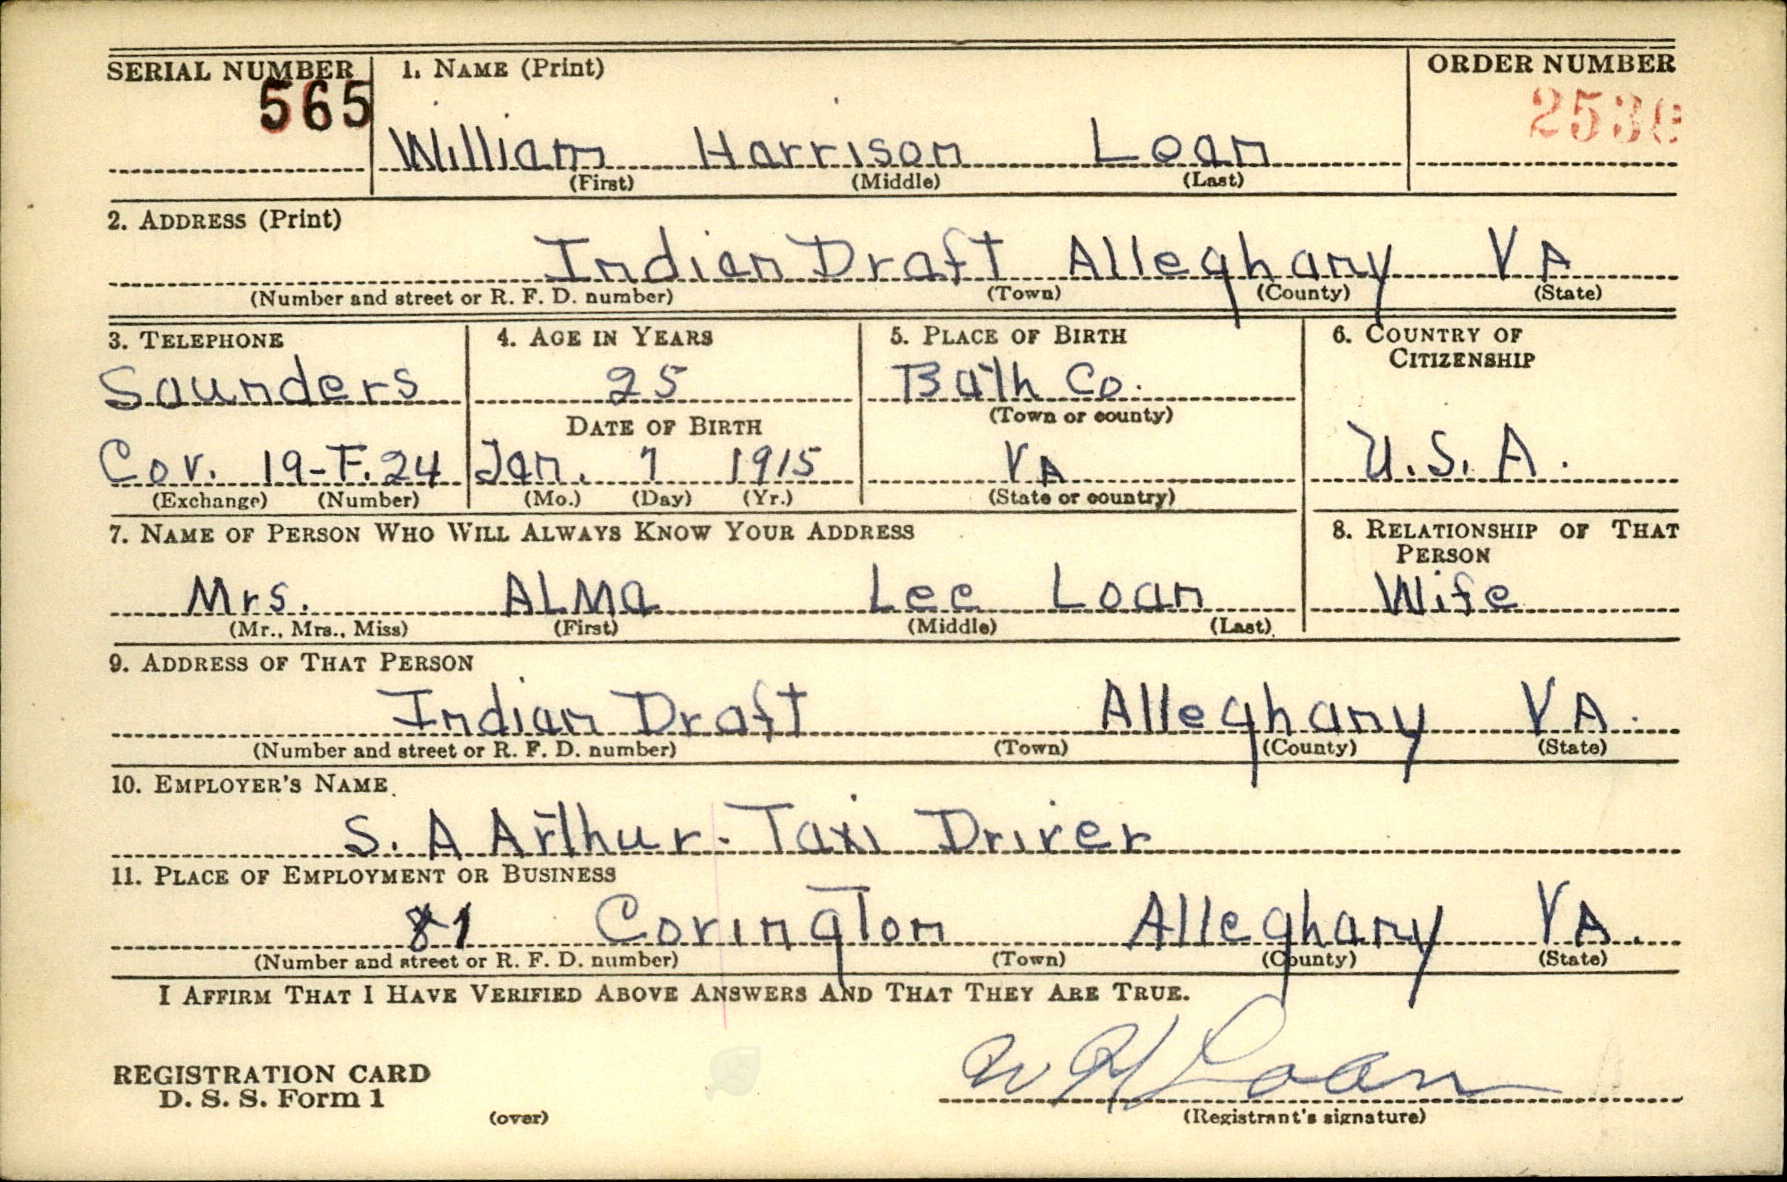 SERIAL NUMBER 1. NAME (Print) ORDER NUMBER
565
William Harrison Loan
(First) (Middle) (Last)
2. ADDRESS (Print)
Indian Draft Alleghany VA
(Number and street or R. F. D. number) (Town) (County) (State)
3. TELEPHONE 4. AGE IN YEARS 5. PLACE OF BIRTH 6. COUNTRY OF CITIZENSHIP
Saunders 25 Bath Co.
(Town or county)
DATE OF BIRTH
Cov. 19-F.24 Jan. 7 1915 VA U.S.A.
(Exchange) (Number) (Mo.) (Day) (Yr.) (State or country)
7. NAME OF PERSON WHO WILL ALWAYS KNOW YOUR ADDRESS 8. RELATIONSHIP OF THAT PERSON
Mrs. ALMa Lee Loan Wife
(Mr., Mrs., Miss) (First) (Middle) (Last)
9. ADDRESS OF THAT PERSON
Indian Draft Alleghany VA.
(Number and street or R. F. D. number) (Town) (County) (State)
10. EMPLOYER'S NAME
S. A Arthur - Taxi Driver
11. PLACE OF EMPLOYMENT OR BUSINESS
81 Covington Alleghany VA.
(Number and street or R. F. D. number) (Town) (County) (State)
I AFFIRM THAT I HAVE VERIFIED ABOVE ANSWERS AND THAT THEY ARE TRUE.
W H Loan
REGISTRATION CARD
D. S. S. Form 1
(over) (Registrant's signature)